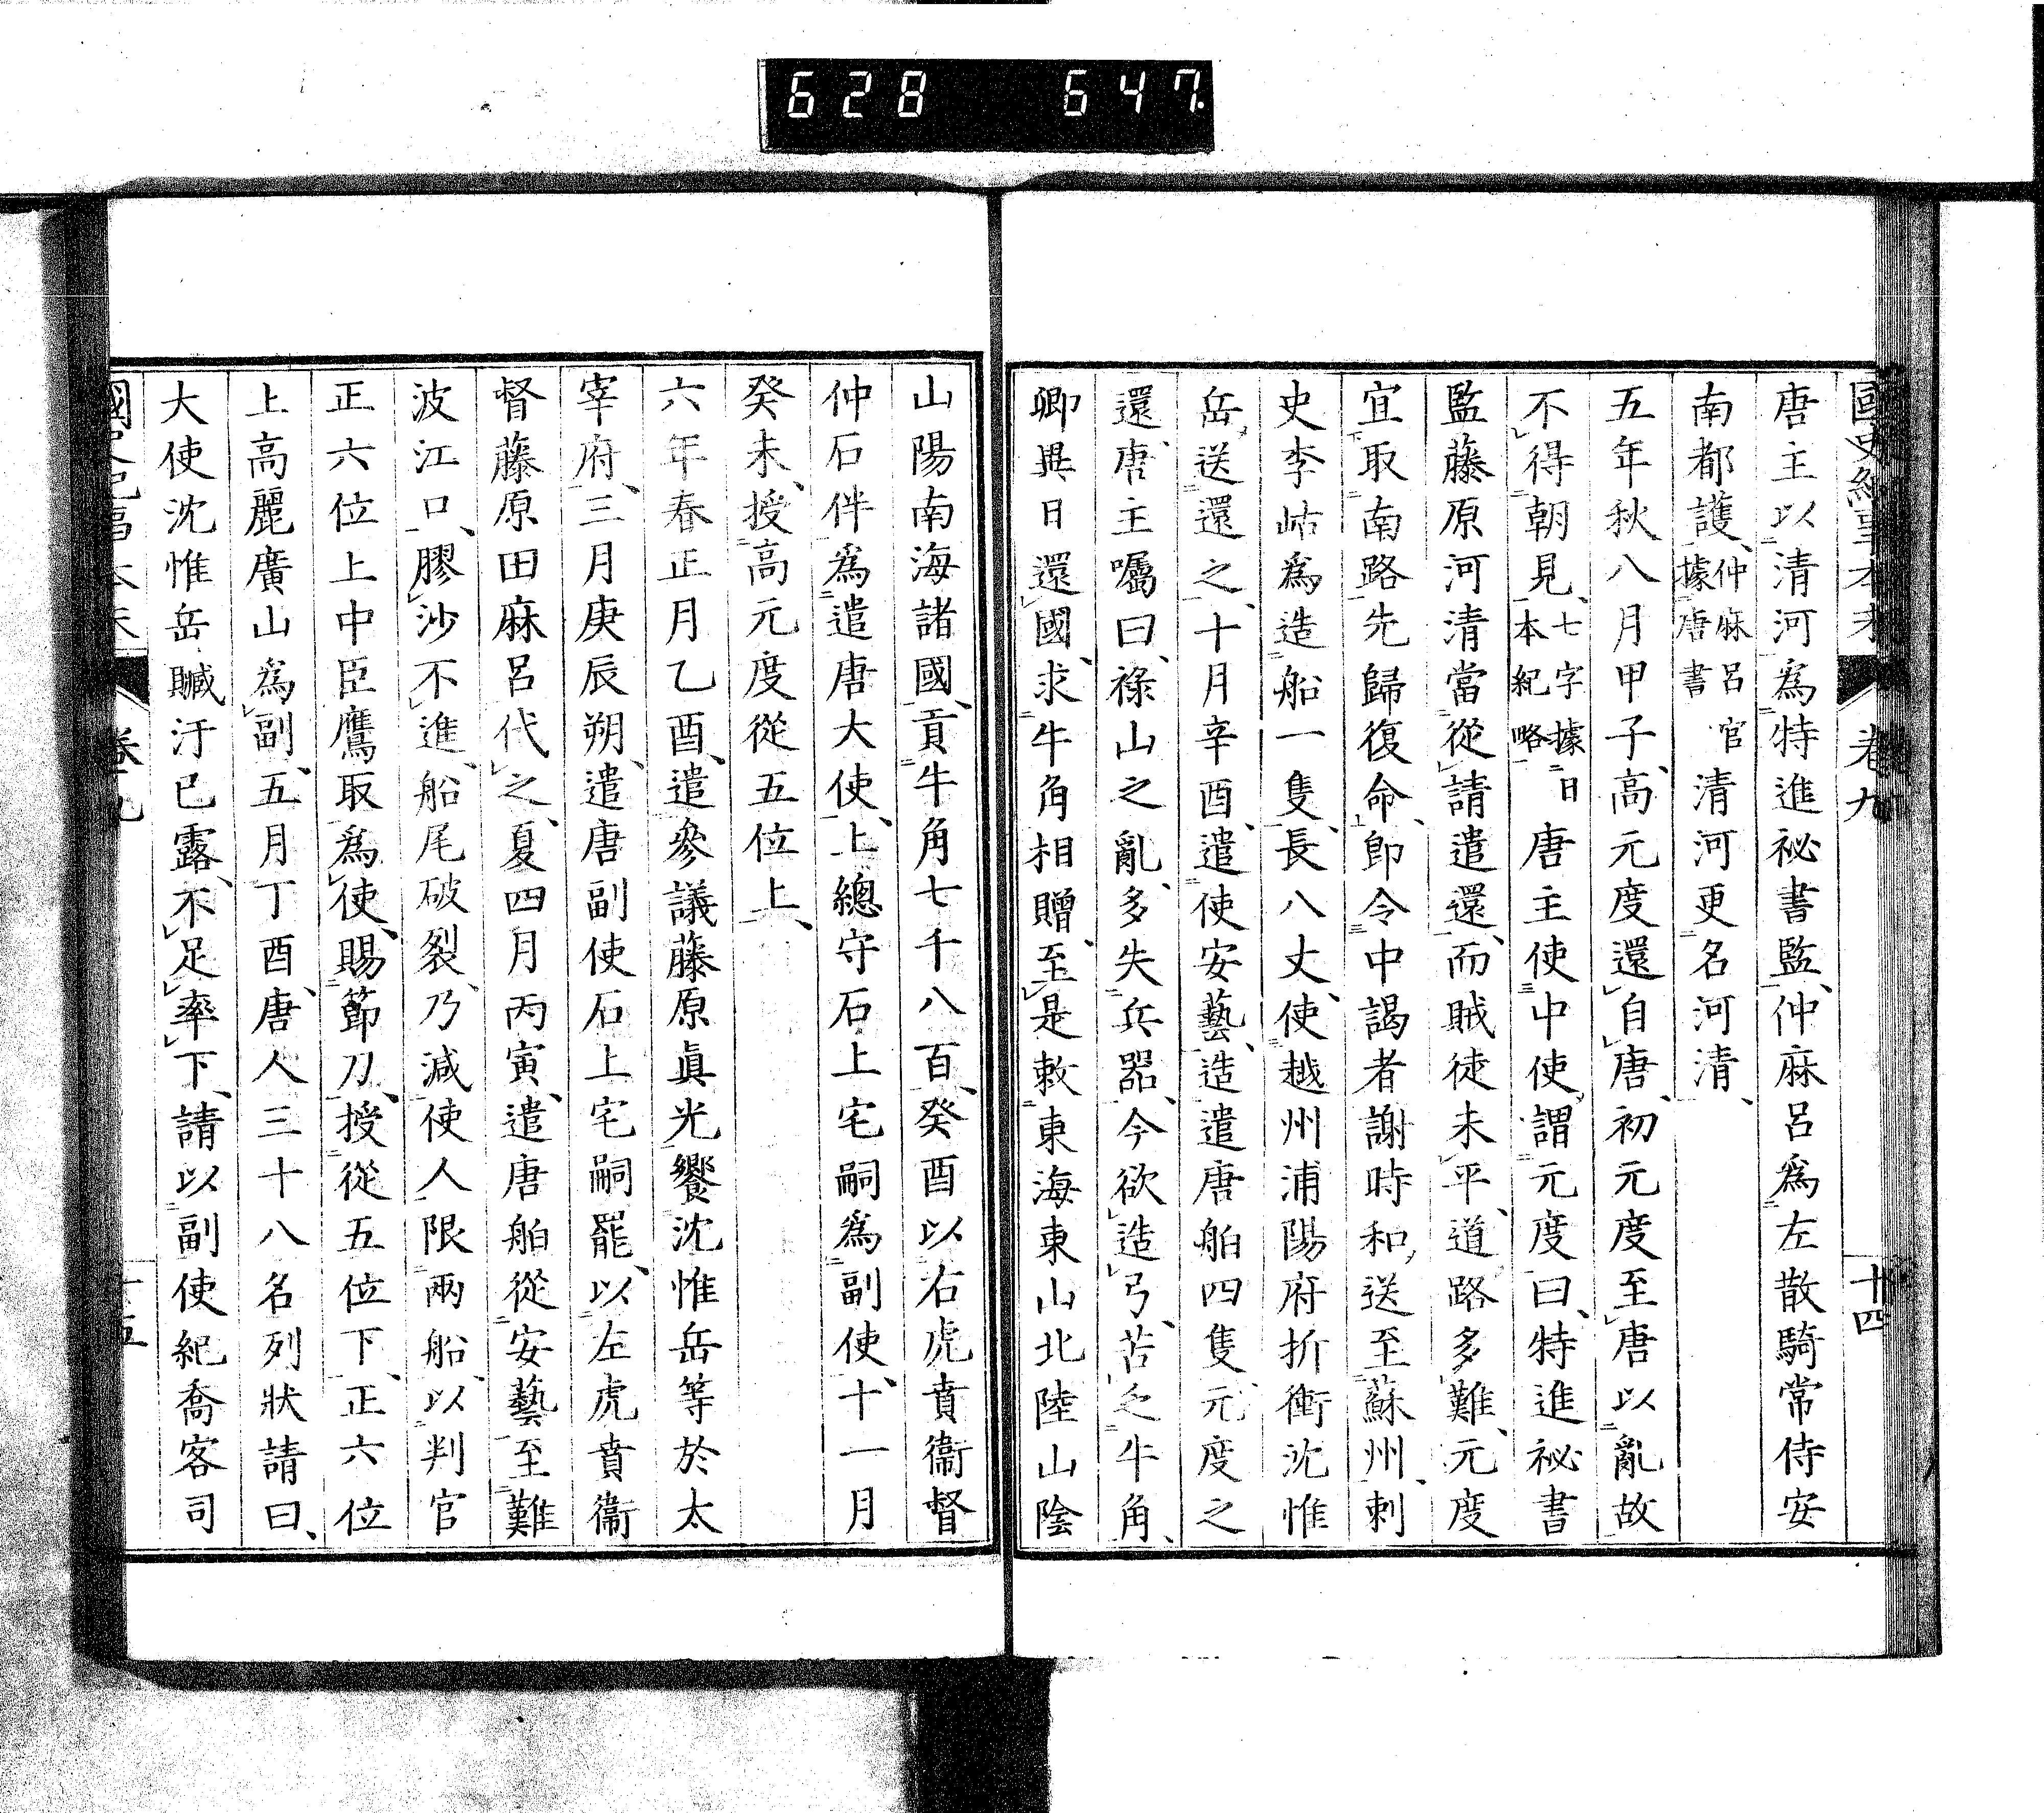 628 647
國史紀事本末 卷九 十四
唐主以清河爲特進祕書監、仲麻呂爲左散騎常侍安
南都護、仲麻呂官據唐書清河更名河清、
五年秋八月甲子、高元度還自唐、初元度至唐以亂故
不得朝見、七字據日本紀略唐主使中使謂元度曰、特進祕書
監藤原河清當從請遣還、而賊徒未平、道路多難、元度
宜取南路先歸復命、卽令中謁者謝時和、送至蘇州、刺
史李岵爲造船一隻、長八丈、使越州浦陽府折衝沈惟
岳、送還之、十月辛酉、遣使安藝、造遣唐舶四隻、元度之
還、唐主囑曰、祿山之亂、多失兵器、今欲造弓、苦乏牛角、
卿異日還國、求牛角相贈、至是敕東海東山北陸山陰
山陽南海諸國、貢牛角七千八百、癸酉以右虎賁衞督
仲石伴爲遣唐大使、上總守石上宅嗣爲副使、十一月
癸未、授高元度從五位上、
六年春正月乙酉、遣參議藤原眞光饗沈惟岳等於太
宰府、三月庚辰朔、遣唐副使石上宅嗣罷、以左虎賁衞
督藤原田麻呂代之、夏四月丙寅、遣唐舶從安藝至難
波江口、膠沙不進、船尾破裂、乃減使人限兩船、以判官
正六位上中臣鷹取爲使、賜節刀、授從五位下、正六位
上高麗廣山爲副、五月丁酉、唐人三十八名列狀請曰、
大使沈惟岳贓汙已露、不足率下、請以副使紀喬客司
國史紀事本末 卷九 十五